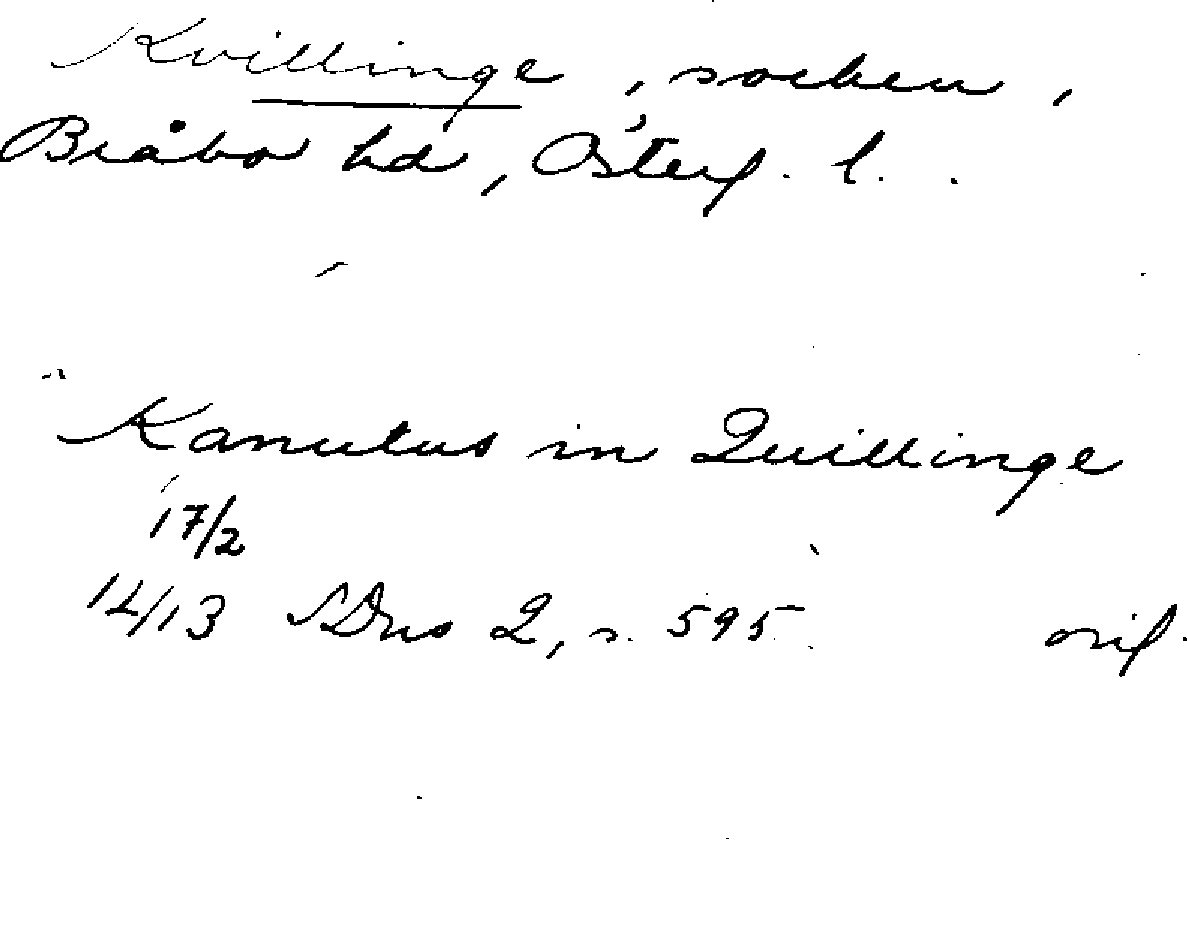 Kvillinge, socken,
Bråbo hd, Österg. l.
Kanutus in Quillinge
17/2
1413 SDns 2, s. 595. orig.